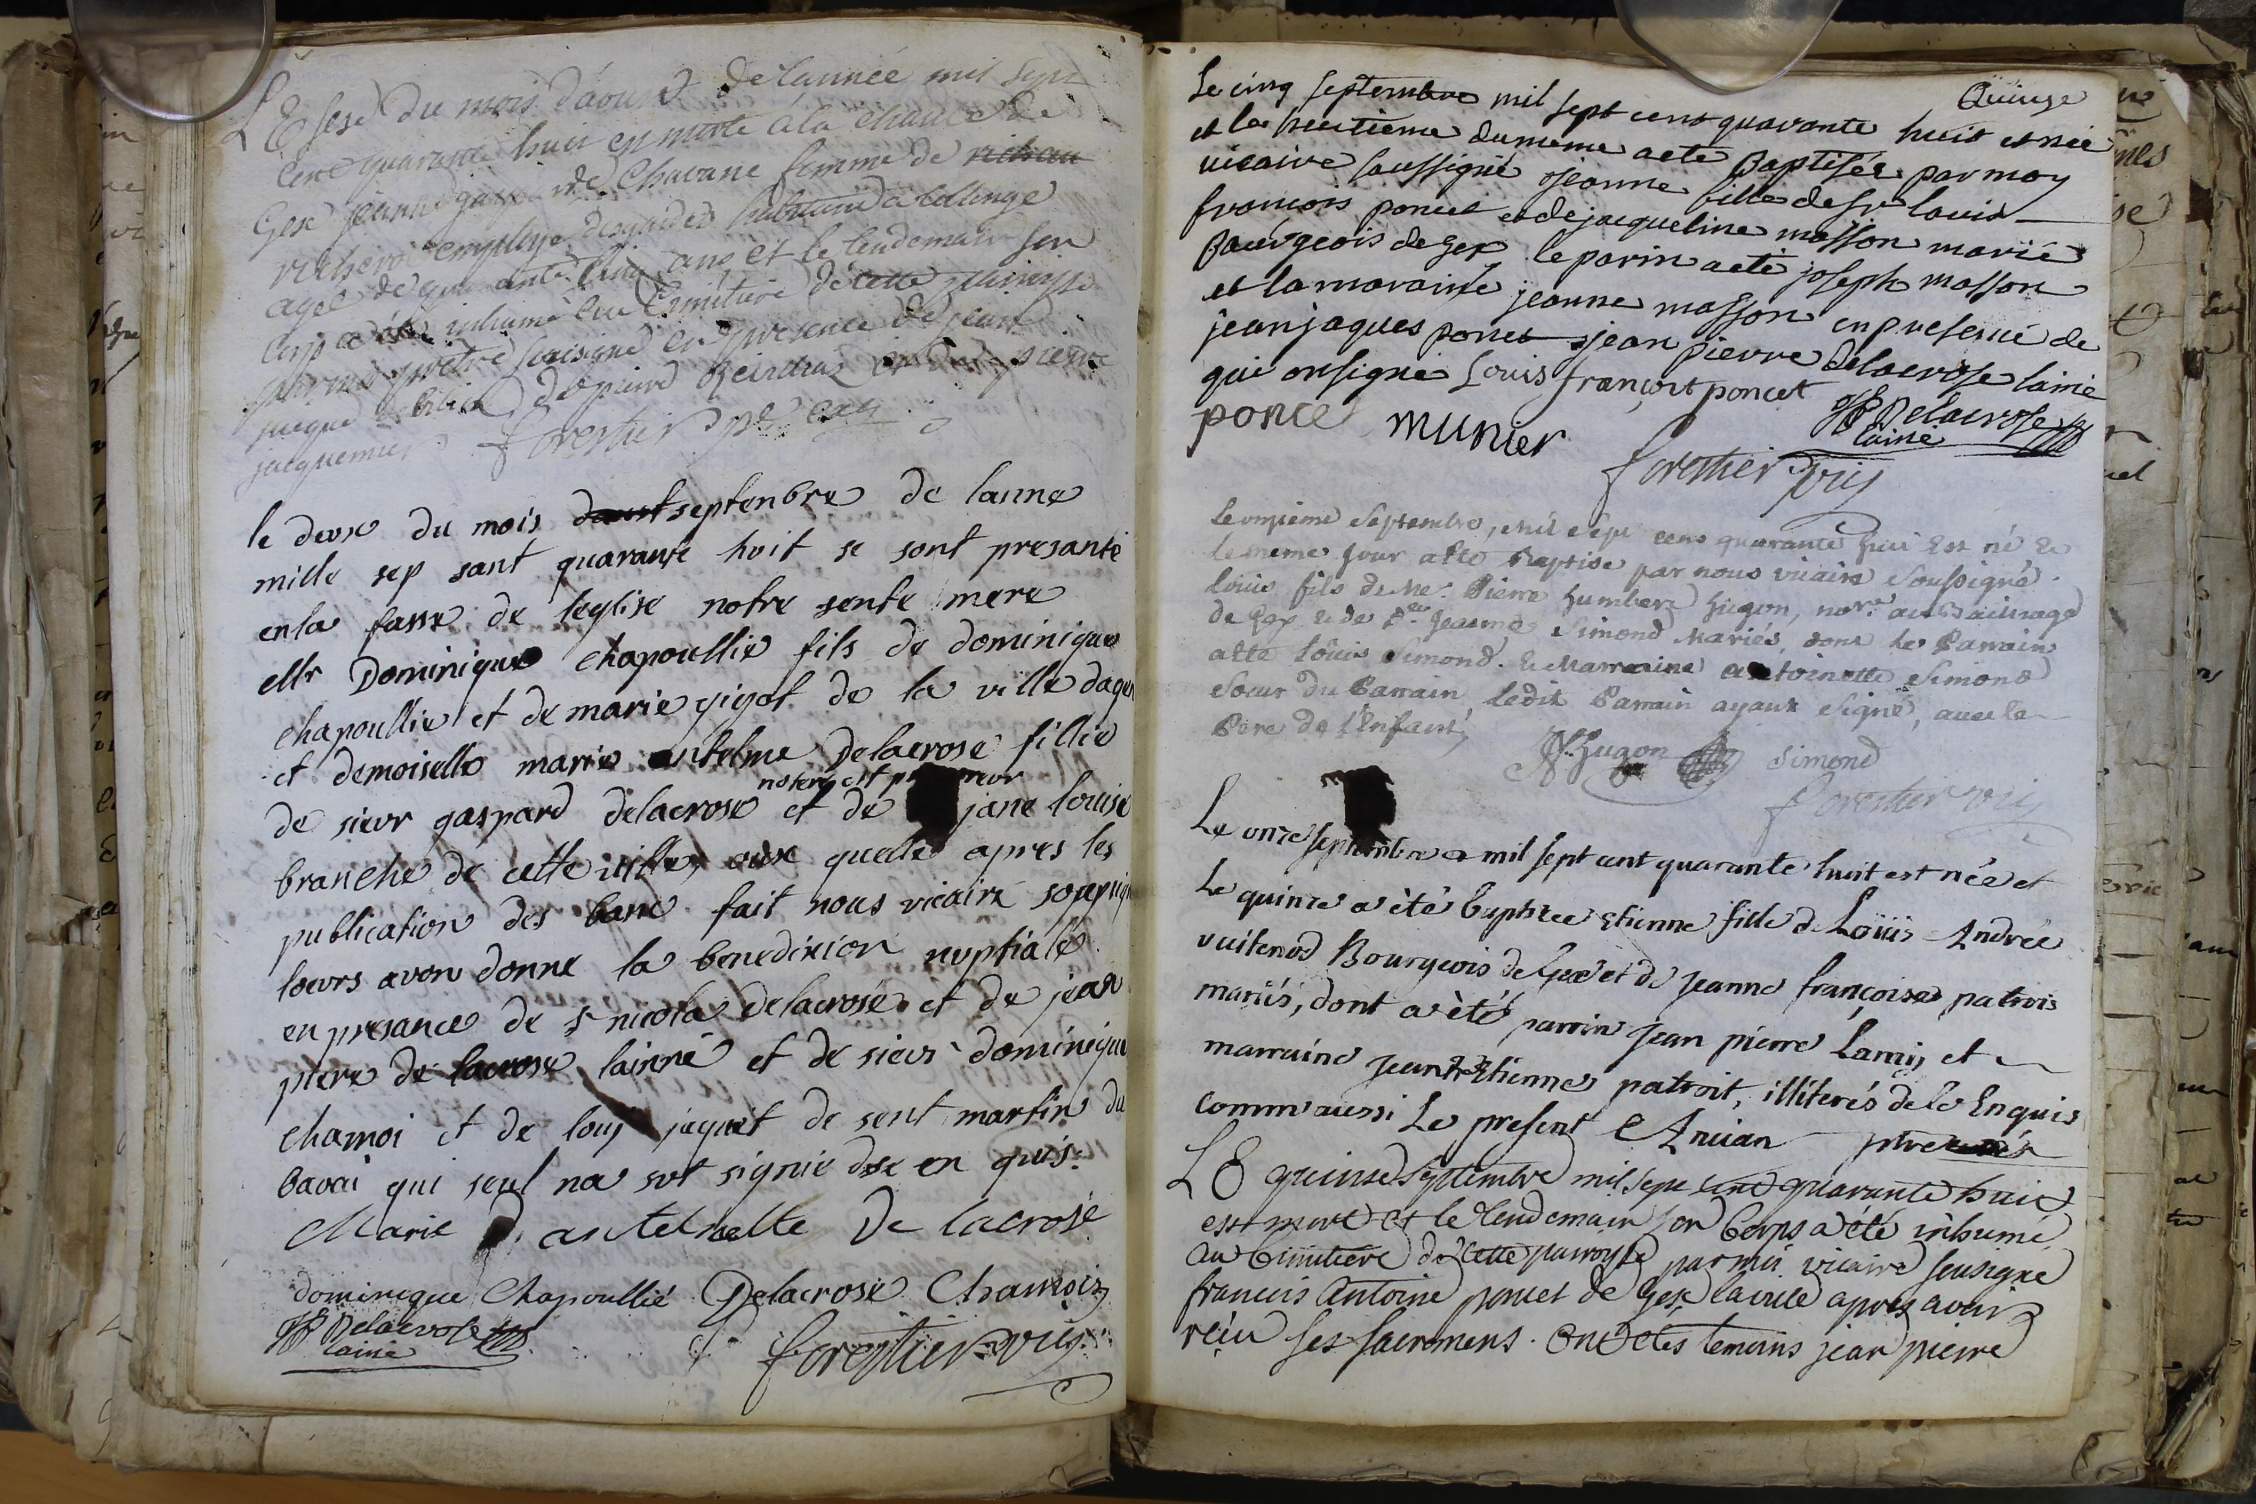 LE sese du mois d'aoust de lannée mil sept
cent quarante huit est morte à la
Gex jeanne de Chavane femme de
employé des gardes à Colenge
agée de quarante cinq ans et le lendemain son
corp a été inhumé au cimitiere de cette
par moy prêtre sousigné en presence de jean
jaque de pierre et de pierre
jacquemier forestier
le deuse du mois daust septenbre de lanne
mille sep sant quarante hoit se sont presanté
enla fasse de leglise notre sente mere
ellr Dominique chapoullie fils de dominique
chapoullie et de marie gigot de la ville dagen
et demoiselle marie antelme Delacrose fillie
notere est
de sieur gaspard delacrose et de jane louise
branche de cette ville, aux quelle apres les
publication des banc fait nous vicaire
loeurs avon donne la benedixion nuptiale
en presance de sr nicola Delacrose et de jean
piere de lacrose lainné et de sieur dominique
chamoi et de louy jaquet de sent martin du
bavai qui seul na sut signie dse en quis.
Marie antelmette De lacrose
dominique Chapoullié Delacrose Chamoix
JP Delacrose
lainé
forestier vic
Quinze
Le cinq septembre mil sept cens quarante huit est née
et le huitieme du meme a eté Baptisée par moy
vicaire soussigné jeanne fille de sr louis
francois poncet et de jacqueline masson mariés
Bourgeois de gex le parin a eté joseph masson
et la maraine jeanne masson en presence de
jean jaques poncet jean pierre Delacrose lainé
qui onsigné Louis françois poncet
ponce munier JP Delacrose
lainé
forestier vic
Le onzieme Septembre, mil Sept cens quarante huit Est né &
le meme jour a eté Baptisé par nous vicaire Soussigné
louis fils de Me. Pierre humbert hugon, nore. au Bailliage
de Gex & de De. Jeanne Simond Mariés, dont le Parrain
a eté loüis Simond. & Marraine antoinette Simond
Soeur du Parrain, ledit Parrain ayant Signé, avec le
Pere de l'Enfant,
hugon Simond
forestier vic
Le onze septembre mil sept cent quarante huit est née et
Le quinze a été baptizée Etienne fille de Loüis Andrée
vuilenod Bourgeois de Gex et de Jeanne françoise patrois
mariés, dont a été parrin Jean pierre Lami, et
marraine Jeanne Etienne patroit, illiterés de ce Enquis
comme aussi Le present Ancian ptre
LE quinse Septembre mil sept cent quarante huit
est mort et le lendemain son Corps a été inhumé
au Cimitiere de cette parroisse par moi vicaire sousigné
francois Antoine poncet de Gex la ville apres avoir
reçu ses sacremens. Ont étés temoins jean pierre